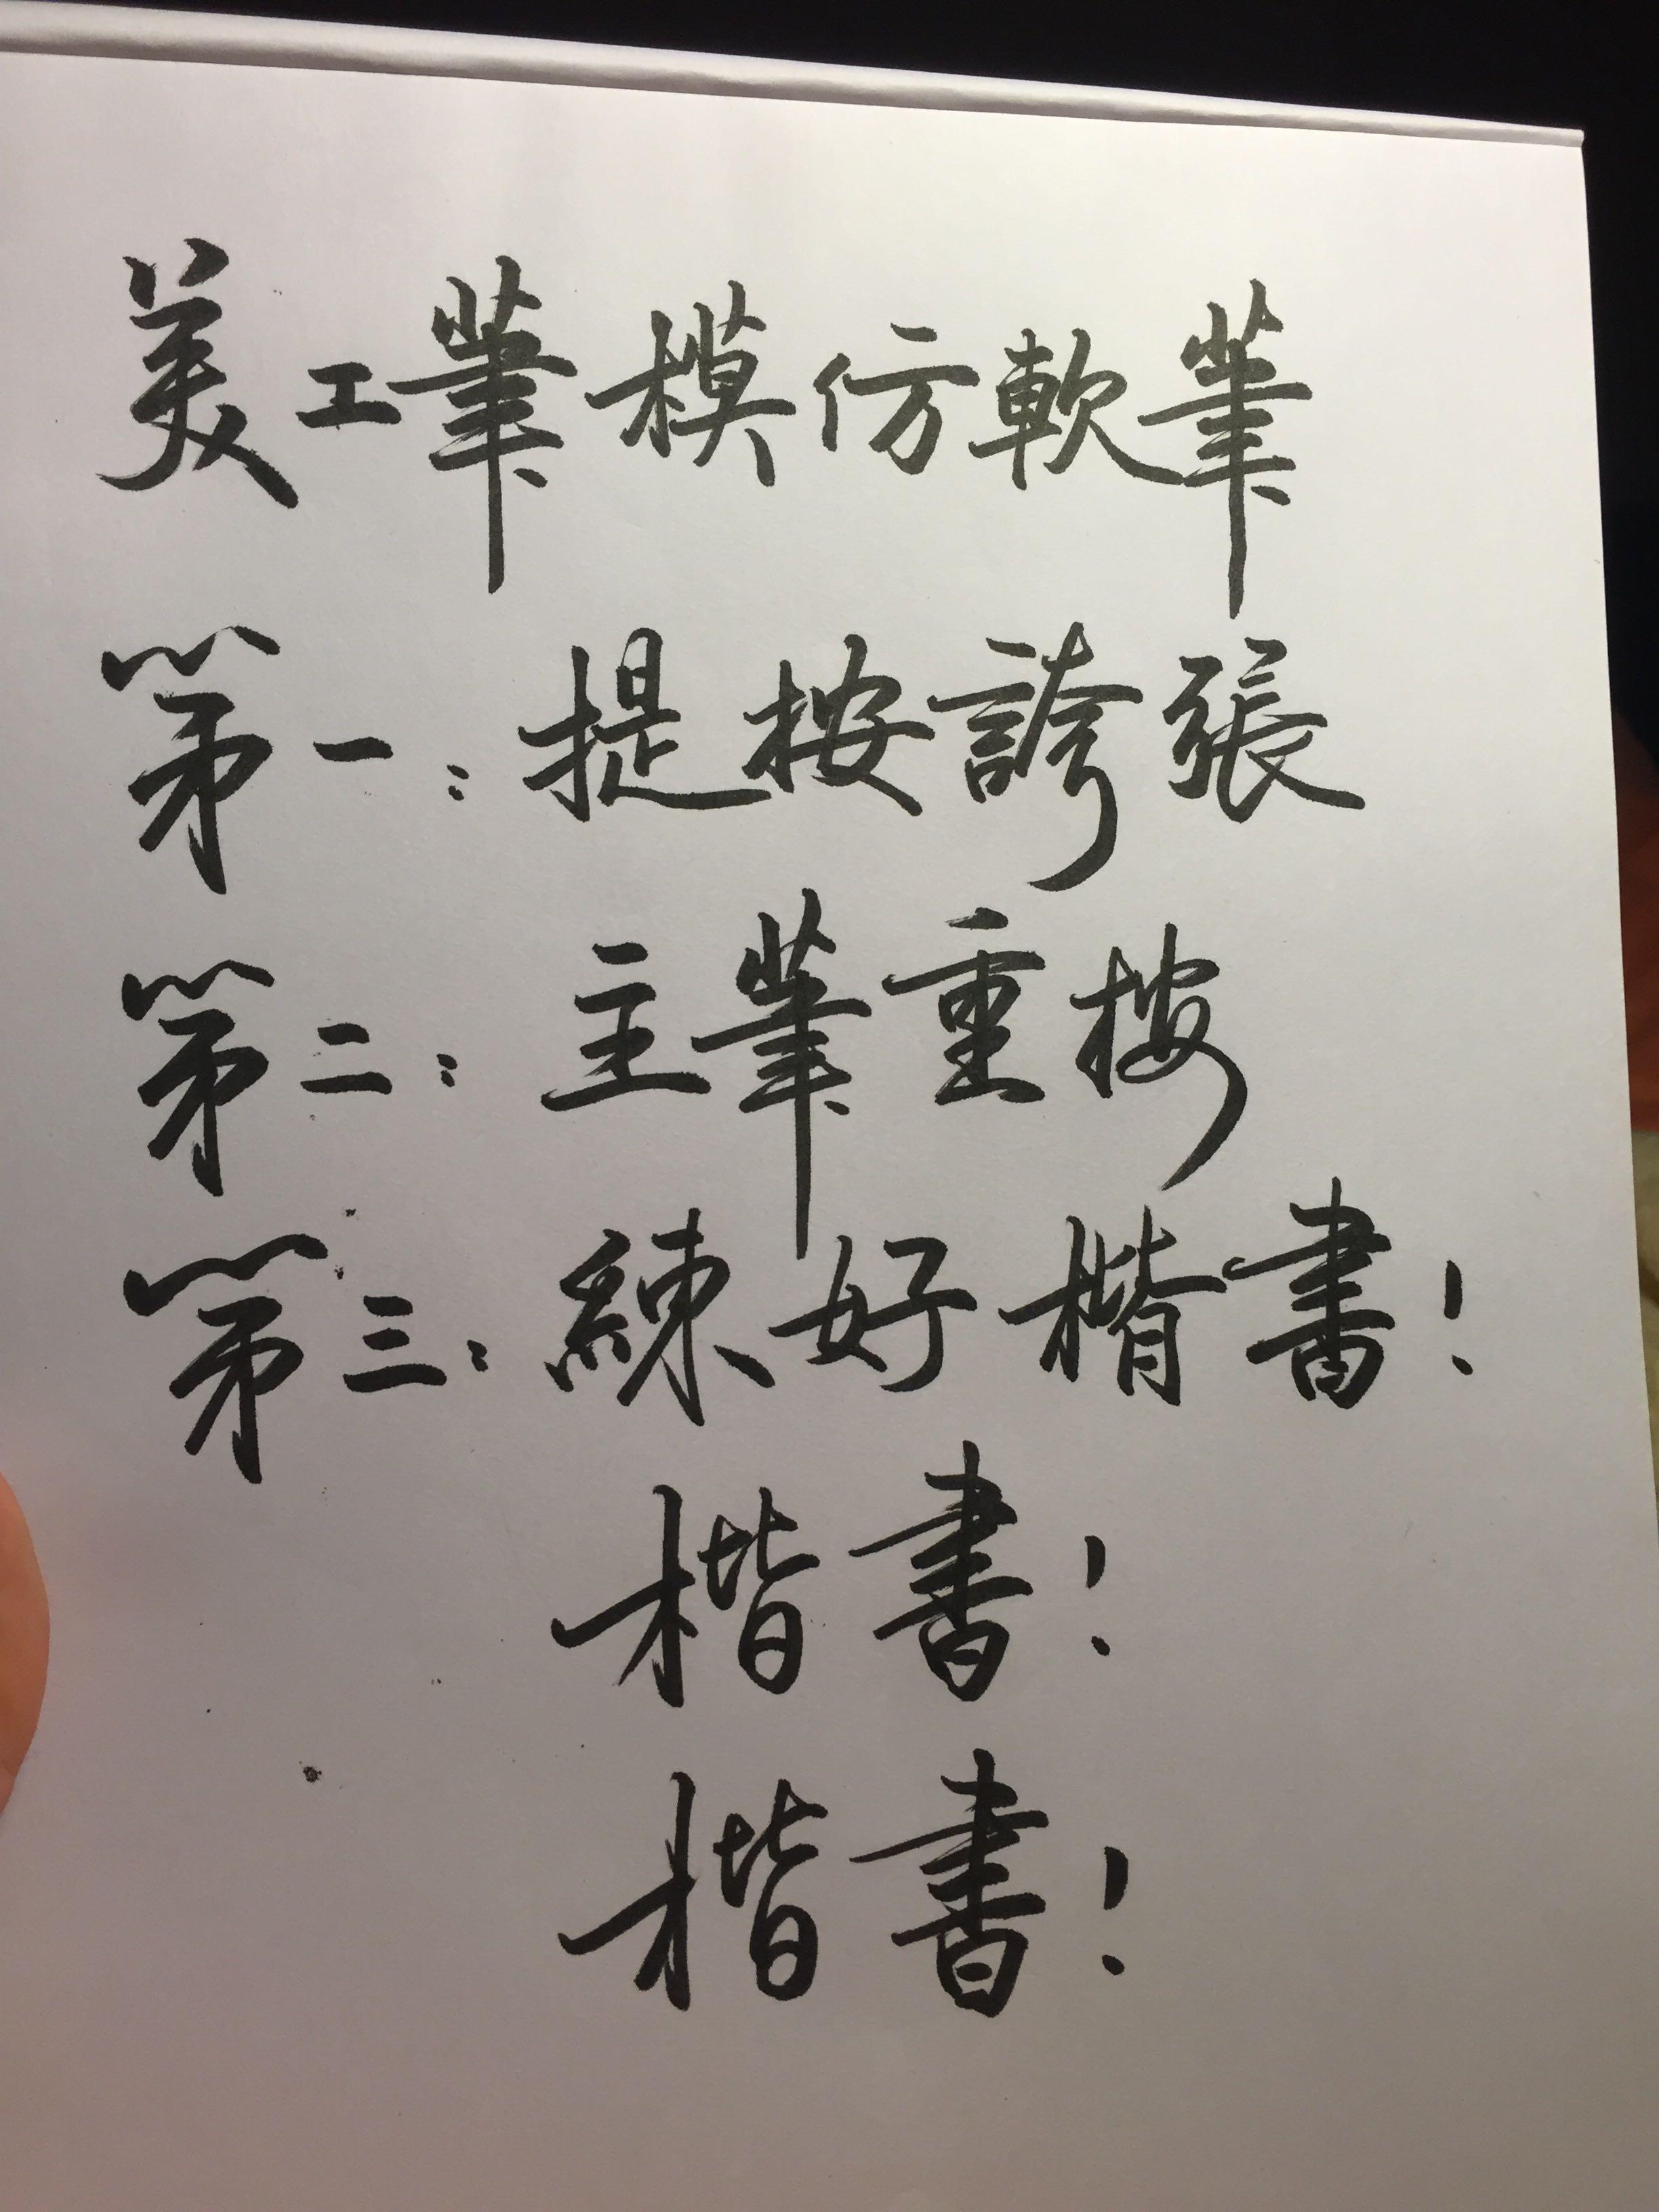 美工筆模仿軟筆
第一：提按誇張
第二：主筆重按
第三：練好楷書！
楷書！
楷書！